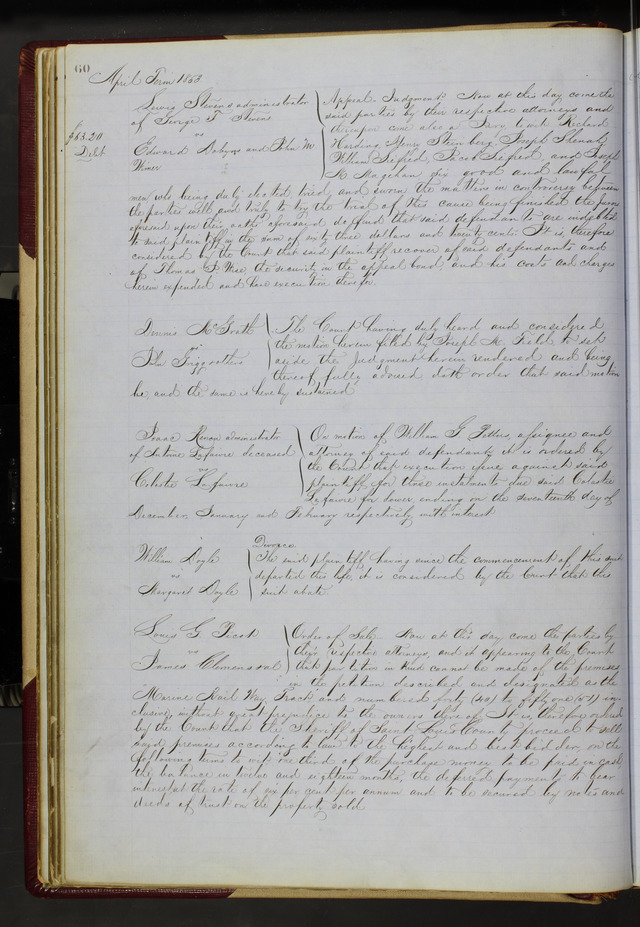 60
April Term 1853
Lewis Stevens administrator
of George T Stevens
vs
Edward Dobyns and John M
Wimer
$63.20
Debt
Appeal. Judgment. Now at this day come the
said parties by their respective attorneys and
thereupon come also a Jury to wit Richard
Harding, Henry Steinberg, Joseph
William Siefried, Jacob Siefried, and Joseph
K. Magehan six good and lawful
men who being duly elected tried and sworn the matters in controversy between
the parties well and truly to try the trial of this cause being finished the jurors
aforesaid upon their oaths aforesaid do find that said defendants are indebted
to said plaintiff in the sum of sixty three dollars and twenty cents. It is, therefore
considered by the Court that said plaintiff recover of said defendants and
of Thomas the security in the appeal bond, and his costs and charges
herein expended and have execution therefor.
Dennis McGrath
vs
John Griggsothers
The Court having duly heard and considered
the motion herein filed by Joseph M. Field to set
aside the Judgment herein rendered and being
thereof fully advised doth order that said motion
be, and the same is hereby sustained
Isaac administrator
of Antoine Lefaivre deceased
vs
Celeste Lefaivre
On motion of William G Pettus, assignee and
attorney of said defendant, it is ordered by
the Court that execution issue against said
plaintiff for three instalments due said Celeste
Lefaivre for dower ending on the seventeenth day of
December, January and February respectively with interest
William Doyle
vs
Margaret Doyle
Divorce.
The said plaintiff having since the commencement of this suit
departed this life, it is considered by the Court that this
suit abate.
Louis G Picot
vs
James Clemens et al
Order of Sale. Now at this day come the parties by
their respective attorneys, and it appearing to the Court
that partition in kind cannot be made of the premises
in the petition described and designated as the
Marine Rail Way Tract and numbered forty (40) to fifty one (51) in-
clusive without great prejudice to the owners thereof It is, therefore ordered
by the Court that the Sheriff of Saint Louis County proceed to sell
said premises according to law to the highest and best bidder, on the
following terms to wit, one third of the purchase money to be paid in cash
the balance in twelve and eighteen months, the deferred payments to bear
interest at the rate of six per cent per annum and to be secured by notes and
deeds of trust on the property sold